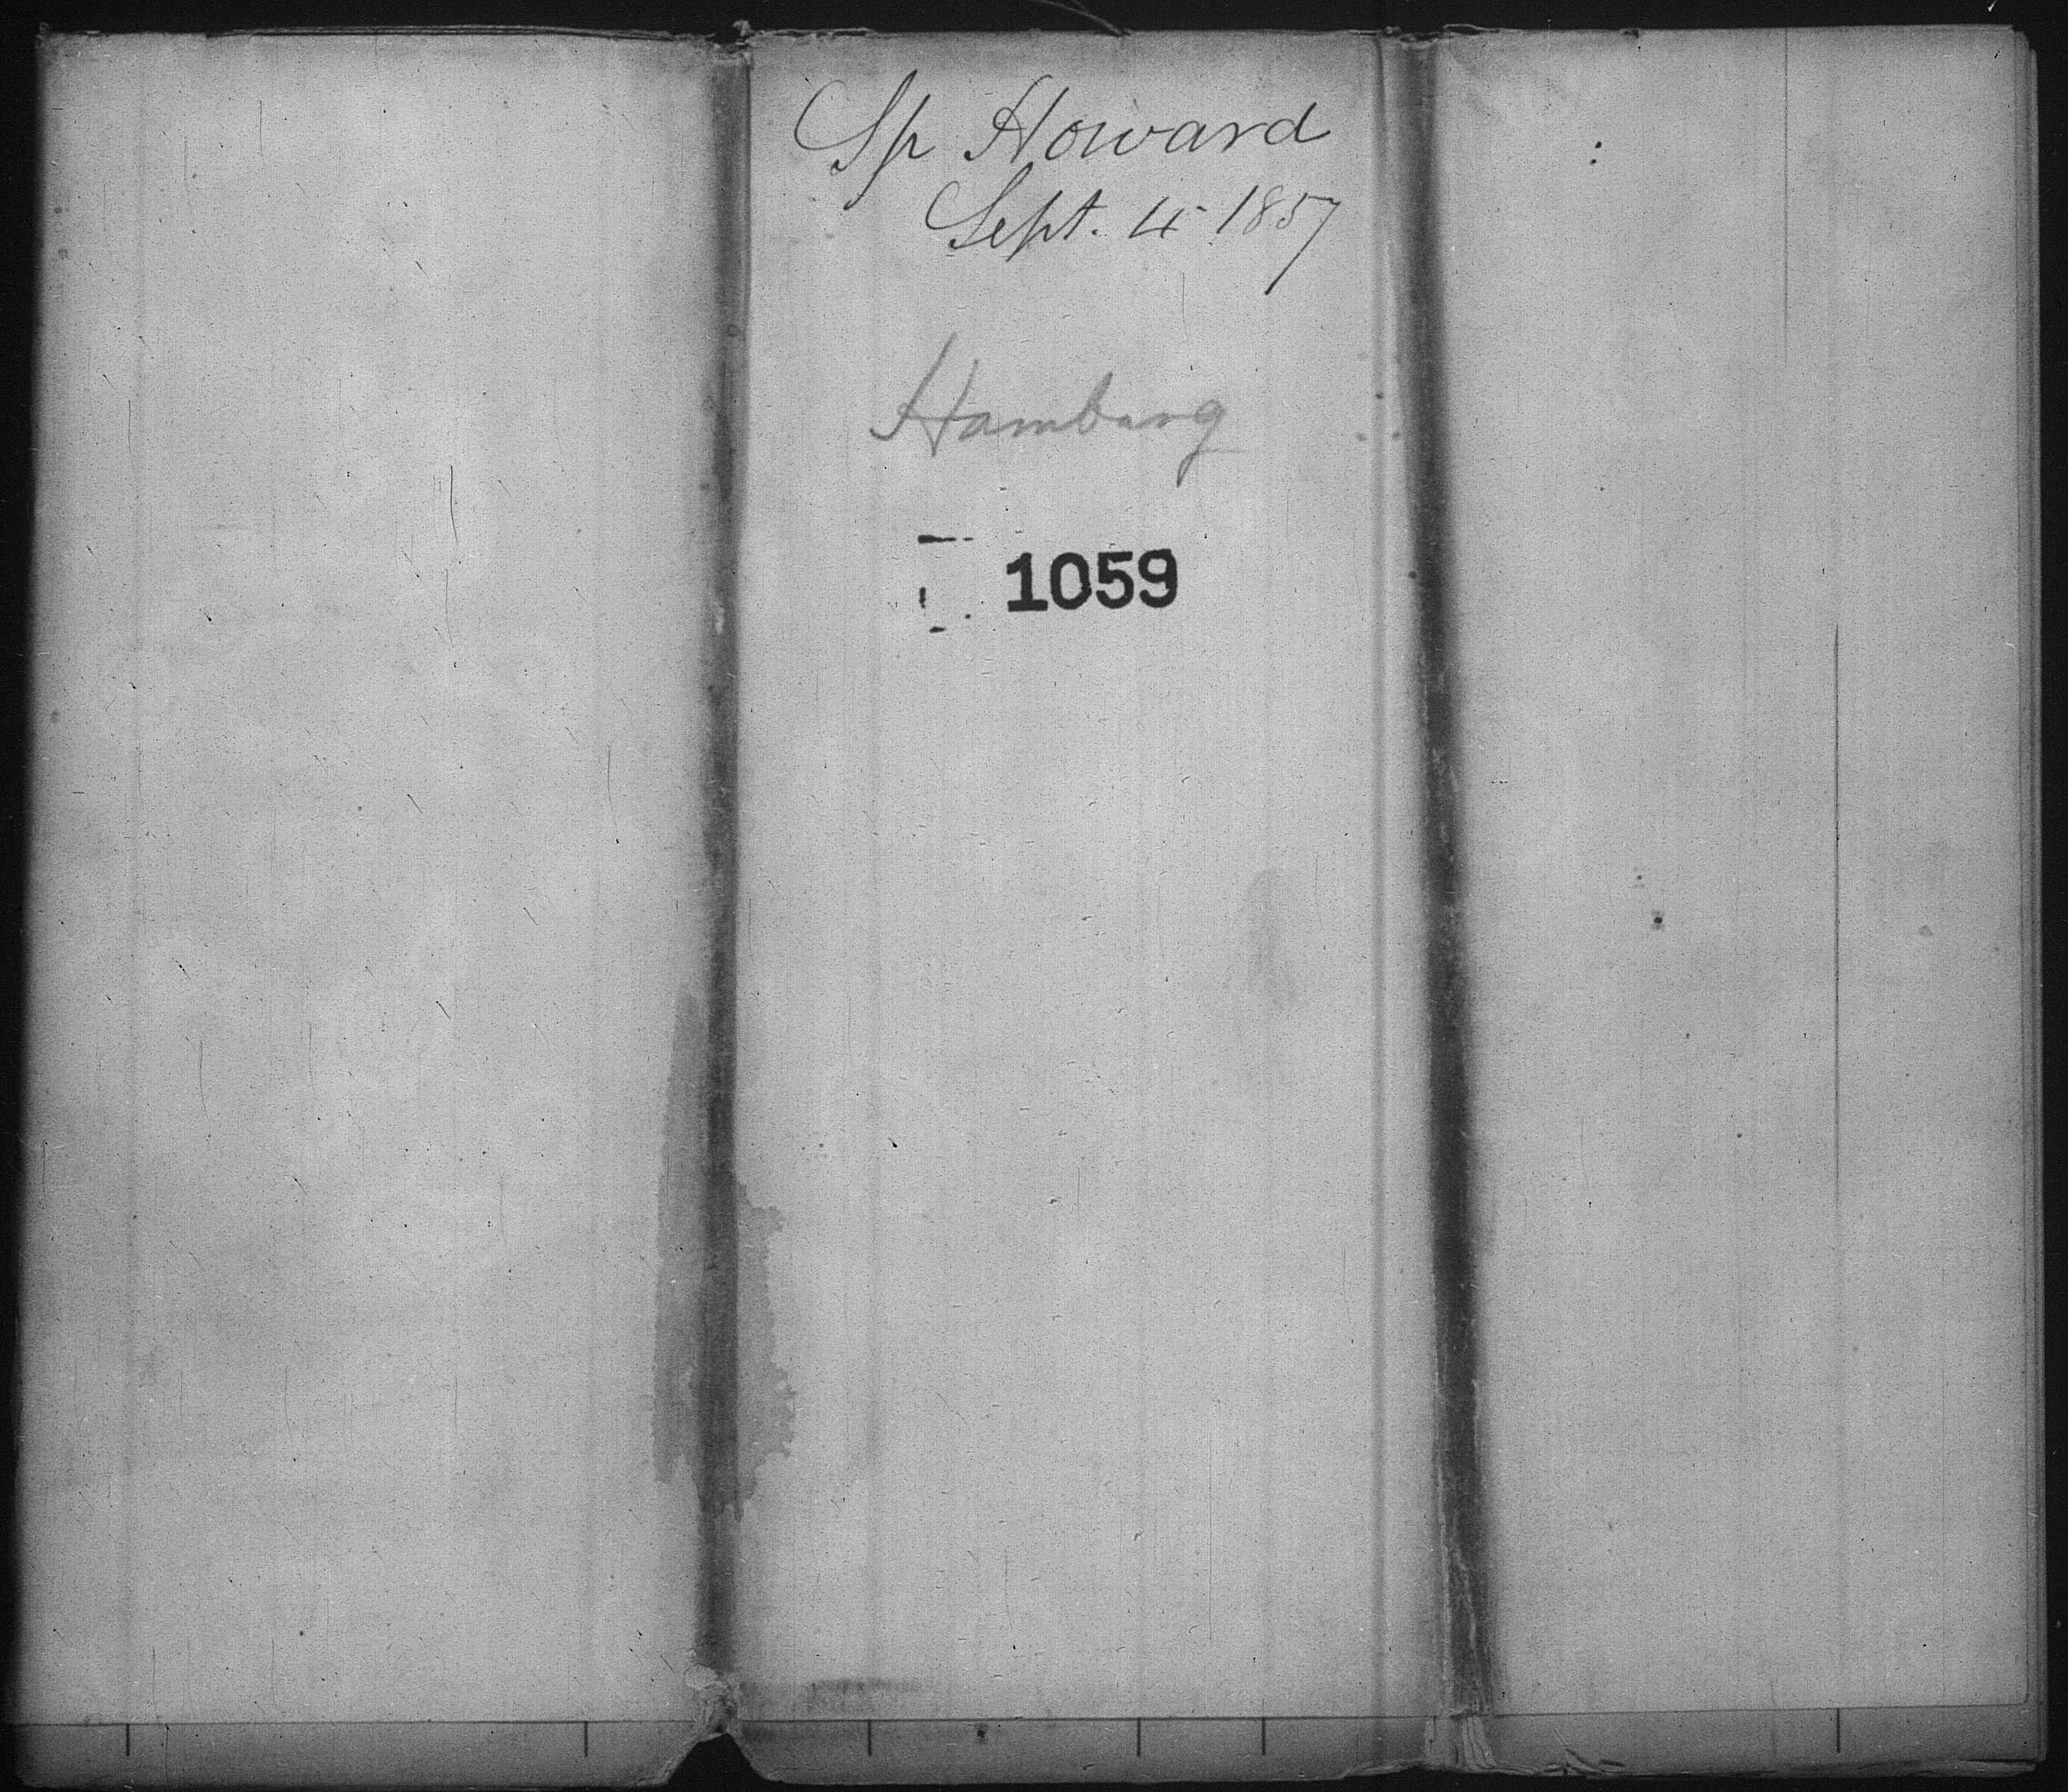 Sp Howard
Sept. 4 1857
Hamburg
1059